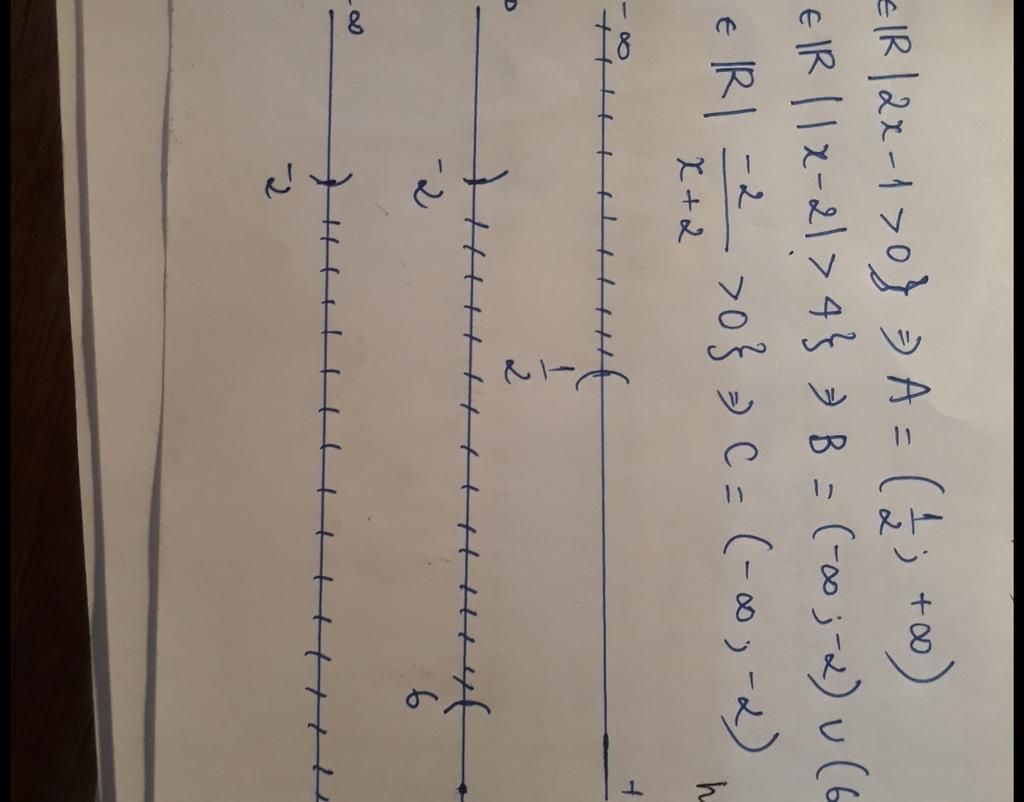 ∈ ℝ | 2x-1 > 0} ⇒ A = (1/2; +∞)
∈ ℝ | |x-2| > 4} ⇒ B = (-∞; -2) ∪ (6
∈ ℝ | -2/(x+2) > 0} ⇒ C = (-∞; -2)
-∞ 1/2 +
-2 6
-∞ -2